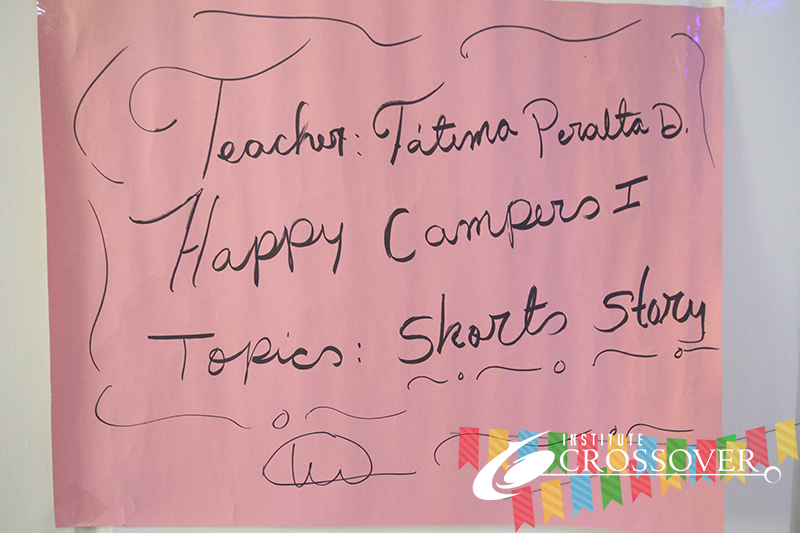 Teacher: Fátima Peralta D.
Happy Campers I
Topics: Skorts Story
INSTITUTE
CROSSOVER